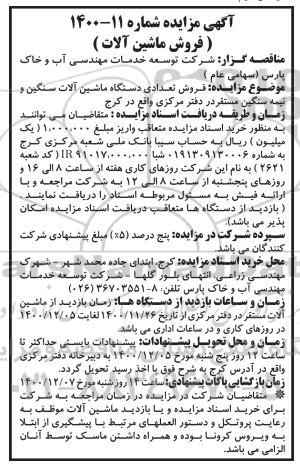 آگهی مزایده شماره ۱۱-۱۴۰۰
( فروش ماشین آلات )
مناقصه گزار: شرکت توسعه خدمات مهندسی آب و خاک
پارس (سهامی عام )
موضوع مزایده: فروش تعدادی دستگاه ماشین آلات سنگین و
نیمه سنگین مستقردر دفتر مرکزی واقع در کرج
زمان و طریقه دریافت اسناد مزایده : متقاضیان می توانند
به منظور خرید اسناد مزایده متعاقب واریز مبلغ ۱.۰۰۰.۰۰۰ ( یک
میلیون ) ریال به حساب سیبا بانک ملی شعبه مرکزی کرج
به شماره ۰۱۹۱۳۰۹۱۳۰۰۰۶ شبا IR ۹۱۰۱۷۰۰۰۰۰۰ ( کد شعبه
۲۶۲۱ ) به نام این شرکت روزهای کاری هفته از ساعت ۸ الی ۱۶ و
روزهای پنجشنبه از ساعت ۸ الی ۱۲ به شرکت مراجعه و با
ارائه فیش به مسئول مربوطه اسناد را دریافت نمایند.
( بازدید از دستگاه ها متعاقب دریافت اسناد مزایده امکان
پذیر می باشد).
سپرده شرکت در مزایده: پنج درصد (۵٪) مبلغ پیشنهادی شرکت
کنندگان می باشد.
محل خرید اسناد مزایده: کرج- ابتدای جاده محمد شهر - شهرک
مهندسی زراعی- انتهای بلوار گلها - شرکت توسعه خدمات
مهندسی آب و خاک پارس تلفن: ۸-۳۶۷۰۳۵۵۱(۰۲۶)
زمان و ساعات بازدید از دستگاه ها: زمان بازدید از ماشین
آلات مستقر در دفتر مرکزی از تاریخ ۱۴۰۰/۱۱/۲۶ لغایت ۱۴۰۰/۱۲/۰۵
در روزهای کاری و در ساعات اداری می باشد.
زمان و محل تحویل پیشنهادات: پیشنهادات بایستی حداکثر تا
ساعت ۱۲ روز پنج شنبه مورخ ۱۴۰۰/۱۲/۰۵ به دبیرخانه دفتر مرکزی
واقع در آدرس کرج به شرح فوق با اخذ رسید تحویل گردد.
زمان بازگشایی پاکات پیشنهادی: ساعت ۱۴ روز شنبه مورخ ۱۴۰۰/۱۲/۰۷
* متقاضیان شرکت در مزایده در زمان مراجعه به شرکت
برای خرید اسناد مزایده و یا بازدید ماشین آلات موظف به
رعایت پروتکل و دستور العملهای مرتبط با پیشگیری از ابتلا
به ویروس کرونا بوده و همراه داشتن ماسک توسط آنان
الزامی می باشد.